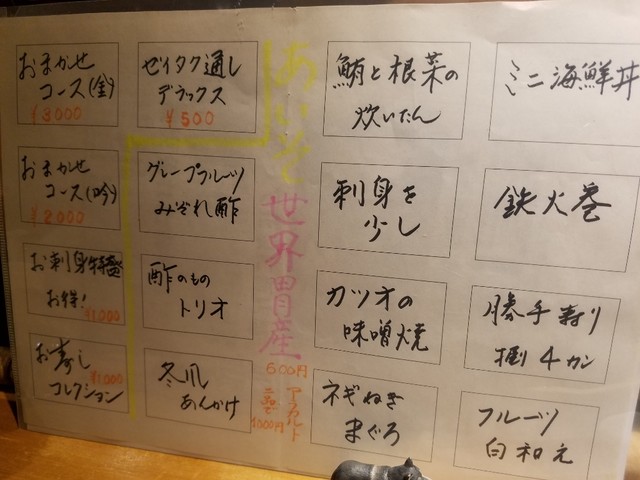 おまかせ
コース(金)
¥3000
おまかせ
コース(吟)
¥2000
お刺身特盛
お得!
¥1,000
お寿し
コレクション
¥1,000
ゼイタク通し
デラックス
¥500
グレープフルーツ
みぞれ酢
酢のもの
トリオ
冬瓜
あんかけ
あいそ
世界胃産
600円
アラカルト
1000円
鮪と根菜の
炊いたん
刺身を
少し
カツオの
味噌焼
ネギねぎ
まぐろ
ミニ海鮮丼
鉄火巻
勝手寿り
握4カン
フルーツ
白和え